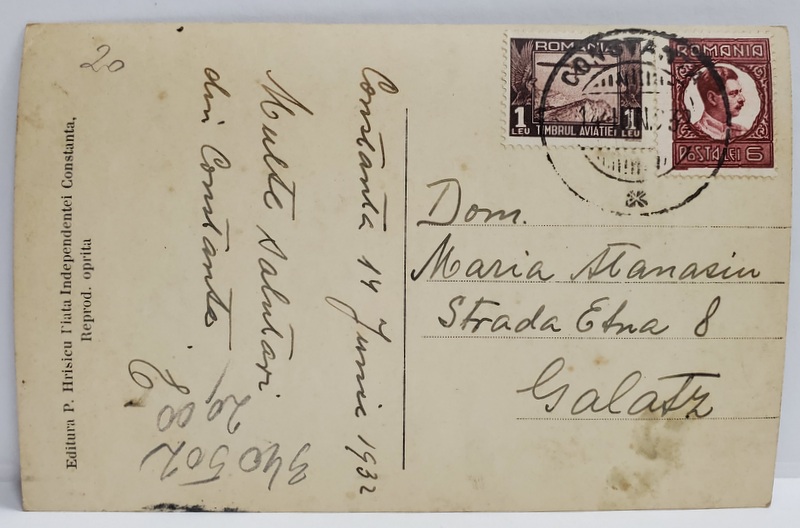 20
Constanta 14 Junie 1932
Multe salutari
din Constanta.
2000
340 502
Editura P. Hrisicu Piata Independentei Constanta,
Reprod. oprita
ROMANIA
1 LEU TIMBRUL AVIATIEI LEU
ROMANIA
POSTA LEI 6
CONSTANTA
Dom.
Maria Atanasiu
Strada Etna 8
Galatz